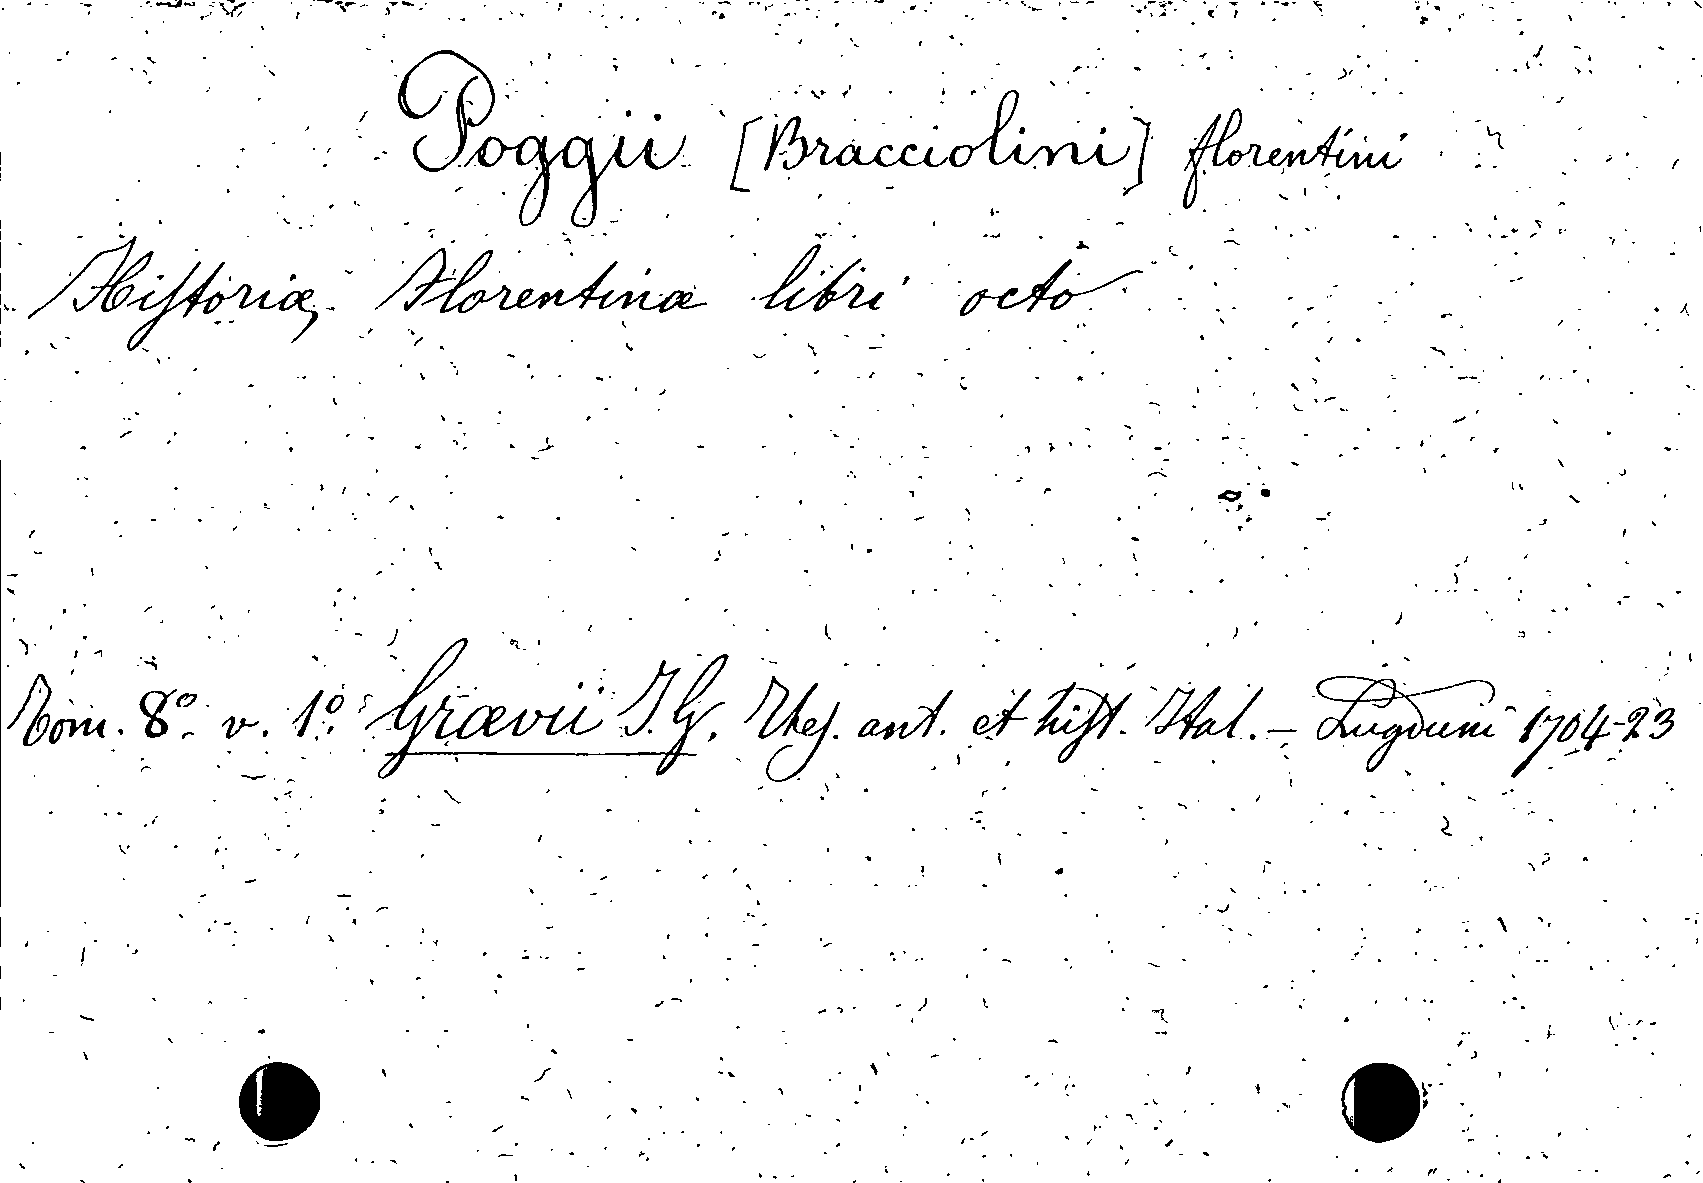 Poggii [Bracciolini] florentini
Hiſtoriæ Florentinæ libri octo
Tom. 8º v. 1º Grævii I. G. Theſ. ant. et hiſt. Ital. – Lugduni 1704-23